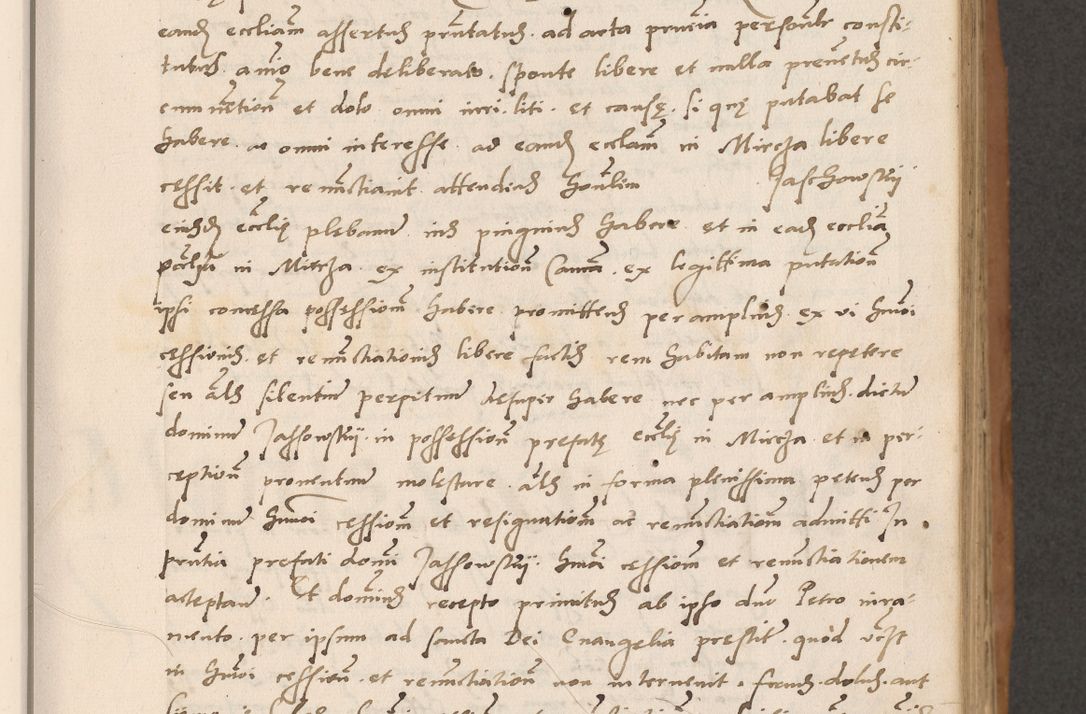 eandē eccliam assertus pn̄tatus ad acta pn̄cia personalr̄ consti-
tutus animo bene deliberato sponte libere et nulla preventus cir-
cumvētion̄ et dolo omni iuri liti et causę si quę putabat se
habere ac omni interesse ad eandē ecclam̄ in Mircza libere
cessit et renūctiavit attendens honlm̄ Jaschowskij
eiusdē ecclię plebanum ius pinguius habere et in eadē ecclia
pārlia in Mircza ex institution̄ Canca ex legittima putation̄
ipsi concessa possession̄ habere promittens per amplius ex vi hmōi
cessionis et renūctiationis libere factis rem habitam non repetere
seu als̄ silentium perpetuum desuper habere nec per amplius dictum
dominum Jassowskij in possession̄ prefatę ecclię in Mircza et in per-
ception̄ proventuum molestare als̄ in forma plenissima petens per
dominum hmōi cessionem et resignationem ac renūctiationem admitti In
pn̄tia prefati domī Jassowskij hmōi cessionem et renūctiationem
acceptan̄ Et dominus recepto primitus ab ipso dno Petro iura-
mento per ipsum ad sancta Dei Evangelia prestit̄ quòd
in hmōi cession̄ et renūctiation̄ non intervenit fraus dolus aut